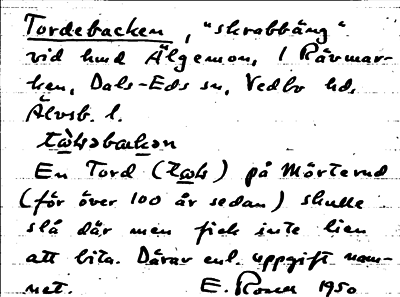 Tordebacken, "skrabbäng"
vid hmd Älgemon, i Rävmar-
ken, Dals-Eds sn, Vedbo hd,
Älvsb. l.
En Tord () på Mörterud
(för över 100 år sedan) skulle
slå där men fick inte lien
att bita. Därav enl. uppgift nam-
net. E. 1950